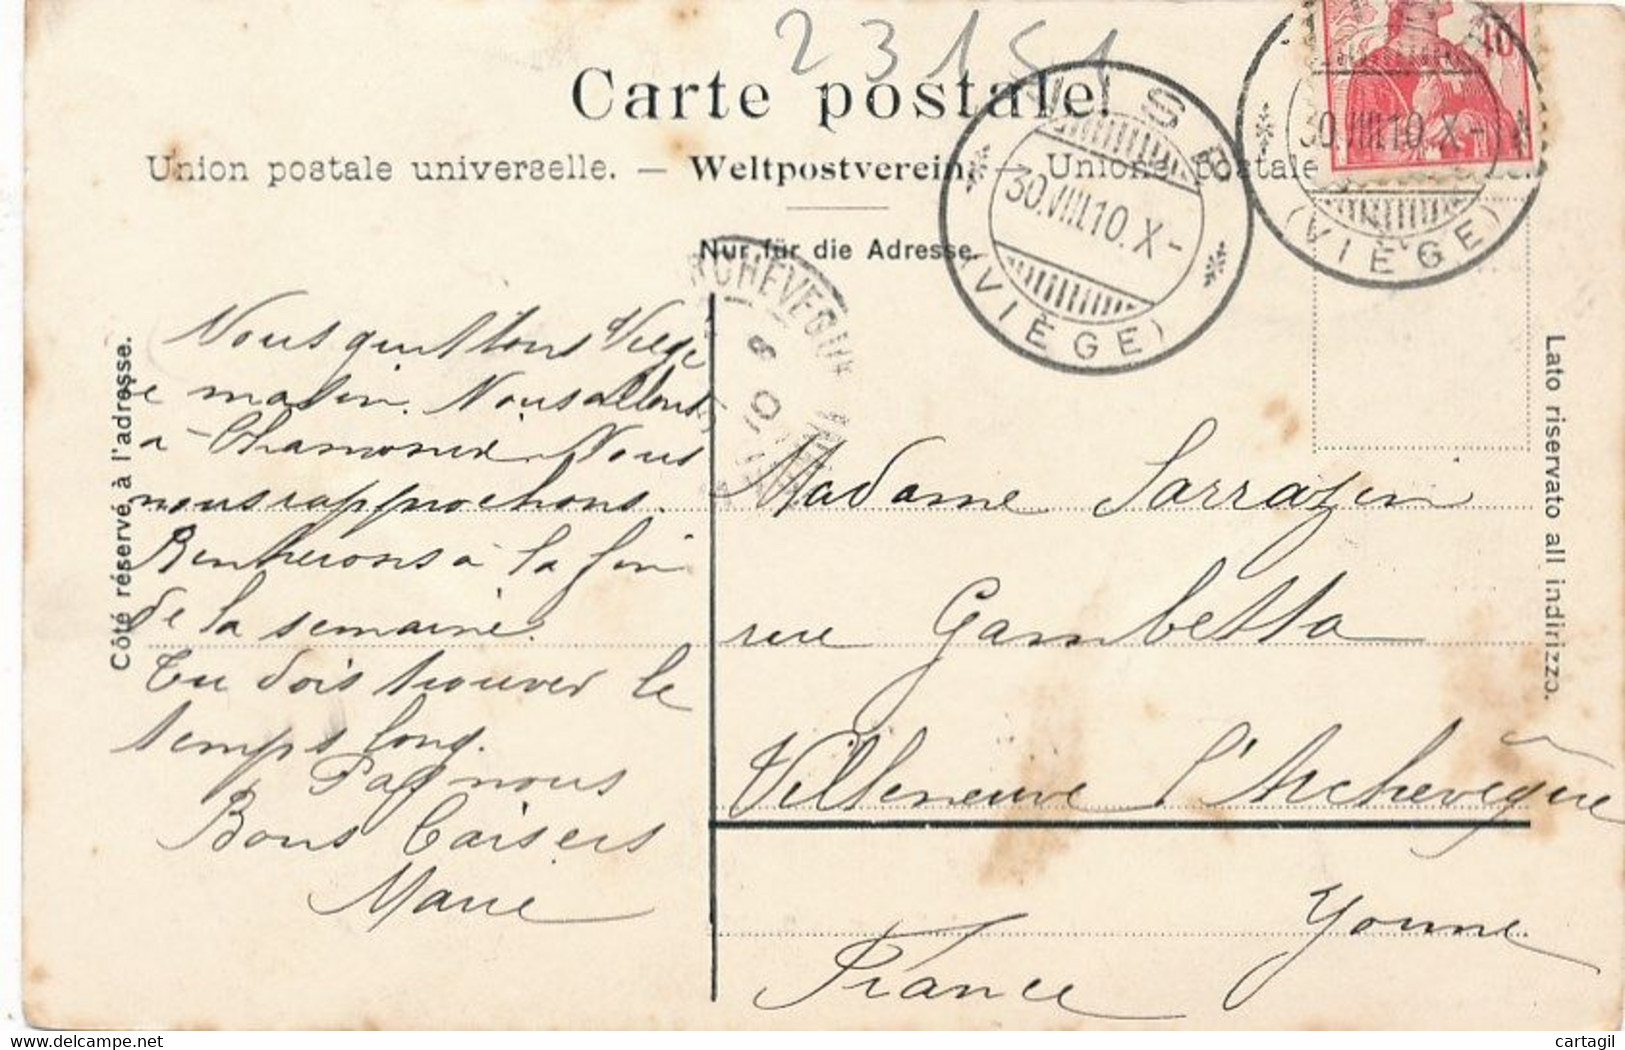 23151
Carte postale
Union postale universelle. — Weltpostverein. — Unione postale
Nur für die Adresse.
Côté réservé à l'adresse.
Lato riservato all indirizzo.
10
VISP
30.VIII.10.X-
(VIÈGE)
30.VIII.10.X-
(VIÈGE)
RCHEVEQUE
8
10
Nous quittons Viège
ce matin. Nous allons
à Chamonix. Nous
nous rapprochons.
Rentrerons à la fin
de la semaine.
Tu dois trouver le
temps long.
Pas nous
Bons baisers
Marie
Madame Sarrazin
rue Gambetta
Villeneuve l'Archevêque
Yonne
France
cartagil